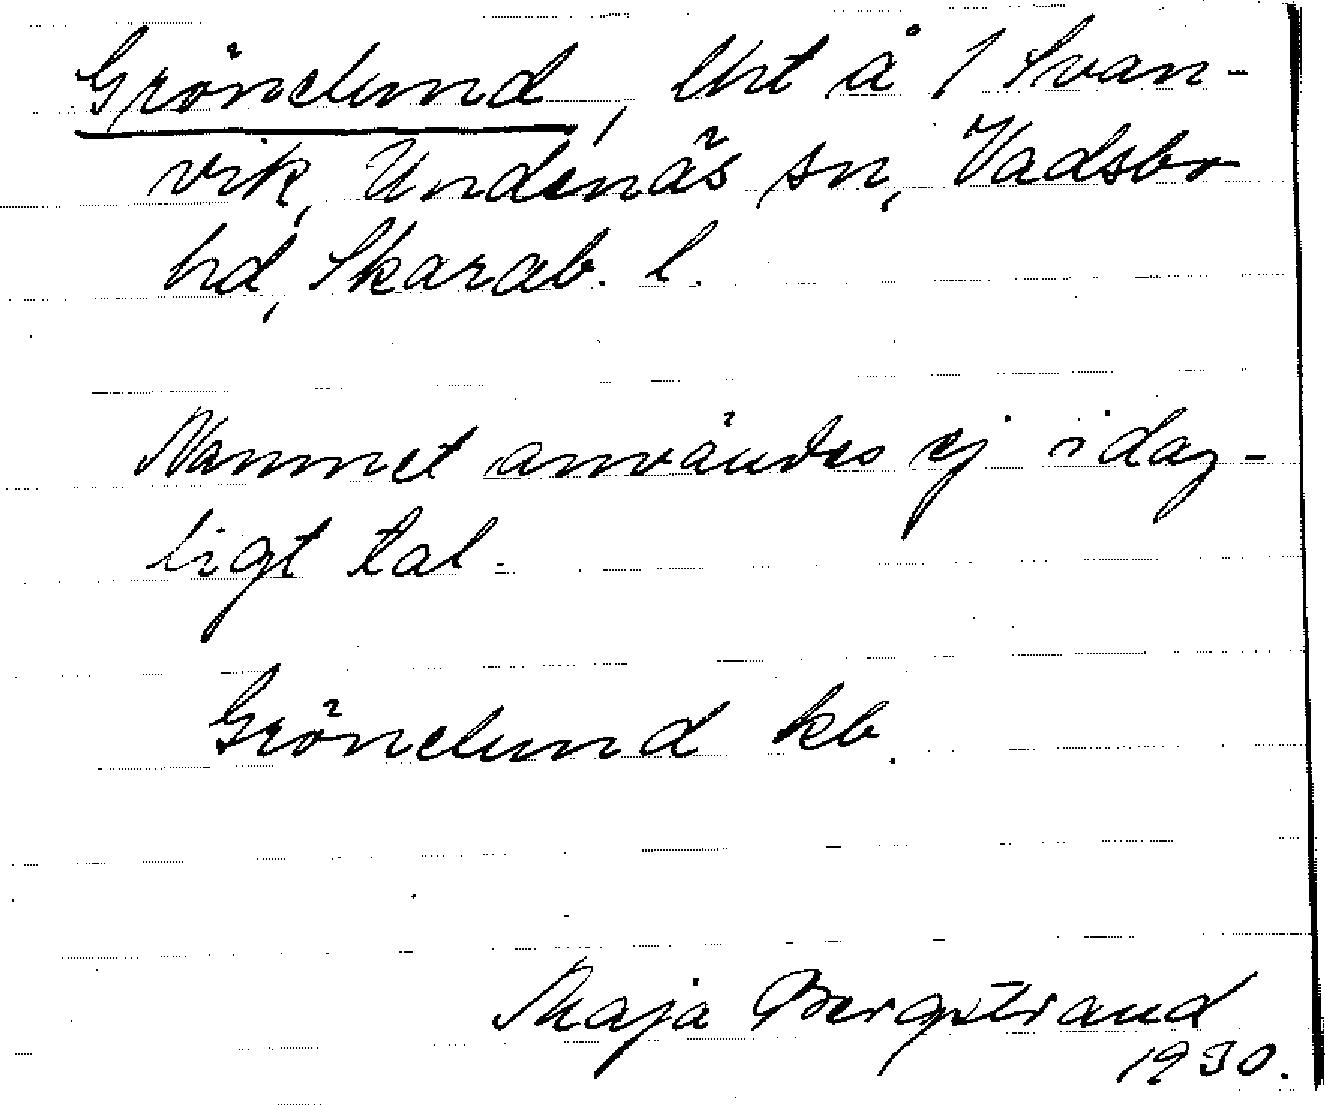 Grönelund, lht å 1 Svan-
vik, Undenäs sn, Vadsbo
hd, Skarab. l.
Namnet användes ej i dag-
ligt tal.
Grönelund kb.
Maja Bergstrand
1930.